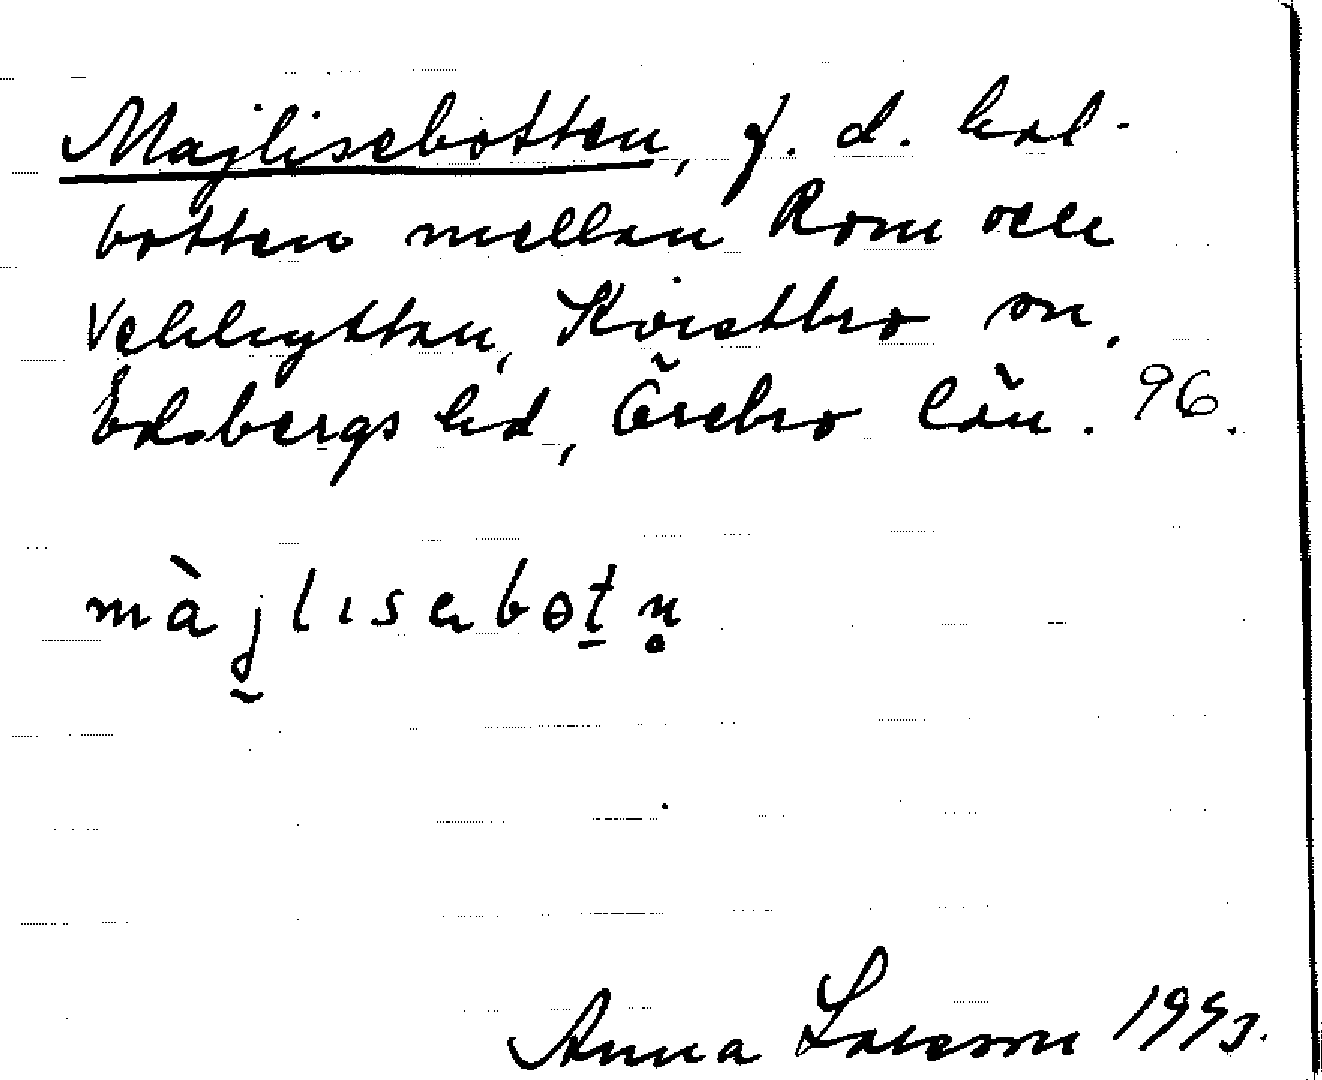 Majlisebotten, f. d. kol-
botten mellan Rom och
Vekhyttan, Kvistbro sn.
Edsbergs hd, Örebro län. 96.
màj̮lıseboṯn̥
Anna Larsson 1953.